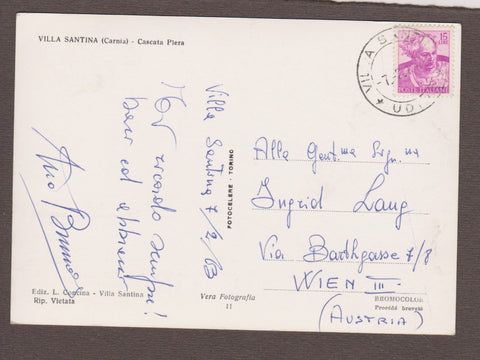 VILLA SANTINA (Carnia) - Cascata Piera
Villa Santina 7/2/63
Vi ricordo sempre!
baci ed
Tuo Bruno
FOTOCELERE - TORINO
15
LIRE
POSTE ITALIANE
VILLA S
UDI
Alla Gent.ma Sig.na
Ingrid Lang
Via Barthgasse 7/8
WIEN III
(AUSTRIA)
Ediz. L. Concina - Villa Santina
Rip. Vietata
Vera Fotografia
11
BROMOCOLOR
Procédé breveté